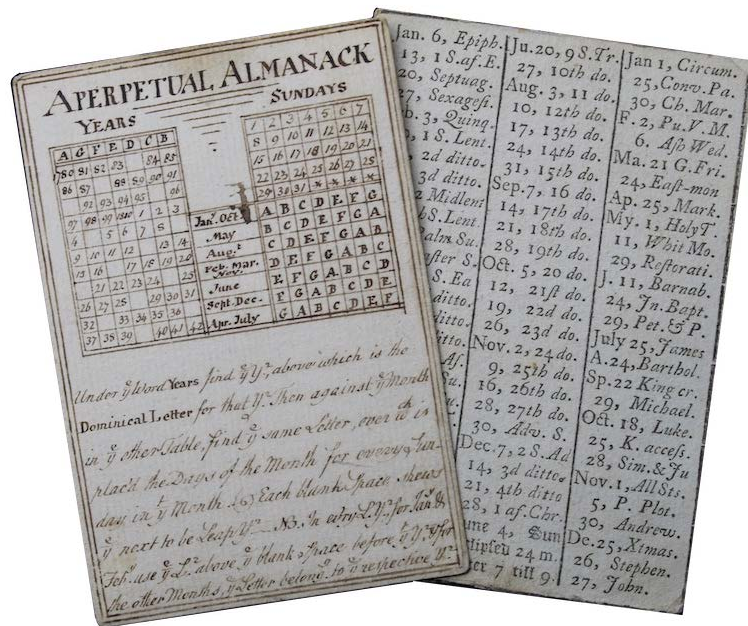 A PERPETUAL ALMANACK
YEARS
SUNDAYS
A G F E D C B
1780 81 82 83 84 85
86 87 88 89 90 91
92 93 94 95 96
97 98 99 1810 1 2 3
4 5 6 7 8
9 10 11 12 13 14
15 16 17 18 19 20
21 22 23 24 25
26 27 28 29 30 31
32 33 34 35 36
37 38 39 40 41 42
1 2 3 4 5 6 7
8 9 10 11 12 13 14
15 16 17 18 19 20 21
22 23 24 25 26 27 28
29 30 31 * * * *
Jan. Oct. A B C D E F G
May B C D E F G A
Augt. C D E F G A B
Feb. Mar. Nov. D E F G A B C
June E F G A B C D
Sept. Dec. F G A B C D E
Apr. July G A B C D E F
Under ye Word Years find ye Yr. above which is the
Dominical Letter for that Yr. Then against ye Month
in ye other Table, find ye same Letter, over wch. is
plac'd the Days of the Month for every Sun-
day in yt Month. Each blank Space shews
ye next to be Leap Yr. — NB. In every L.Yr. for Jany. &
Feby. use ye Lr. above ye blank Space before ye Yr. & for
the other Months, ye Letter belong. to ye respective Yr.
Jan. 6, Epiph.
13, 1 S.af.E.
20, Septuag.
27, Sexagesi.
b. 3, Quinq.
1 S. Lent.
2d ditto.
3d ditto.
Midlent
S. Lent
alm Su.
ster S.
S. Ea
ditto.
ditto.
ditto.
Ju. 20, 9 S. Tr.
27, 10th do.
Aug. 3, 11 do.
10, 12th do.
17, 13th do.
24, 14th do.
31, 15th do.
Sep. 7, 16 do.
14, 17th do.
21, 18th do.
28, 19th do.
Oct. 5, 20 do.
12, 21st do.
19, 22d do.
26, 23d do.
Nov. 2, 24 do.
9, 25th do.
16, 26th do.
28, 27th do.
30, Adv. S.
Dec. 7, 2 S. Ad
14, 3d ditto.
21, 4th ditto
28, 1 af. Chr.
une 4, Sun
clipsed 24 m.
ter 7 till 9.
Jan 1, Circum.
25, Conv. Pa.
30, Ch. Mar.
F. 2, Pu. V. M.
6. Ash Wed.
Ma. 21 G. Fri.
24, East-mon
Ap. 25, Mark.
My. 1, Holy T.
11, Whit Mo.
29, Restorati.
J. 11, Barnab.
24, Jn. Bapt.
29, Pet. & P.
July 25, James
A. 24, Barthol.
Sp. 22 King cr.
29, Michael.
Oct. 18, Luke.
25, K. access.
28, Sim. & Ju
Nov. 1, All Sts.
5, P. Plot.
30, Andrew.
De. 25, Xtmas.
26, Stephen.
27, John.